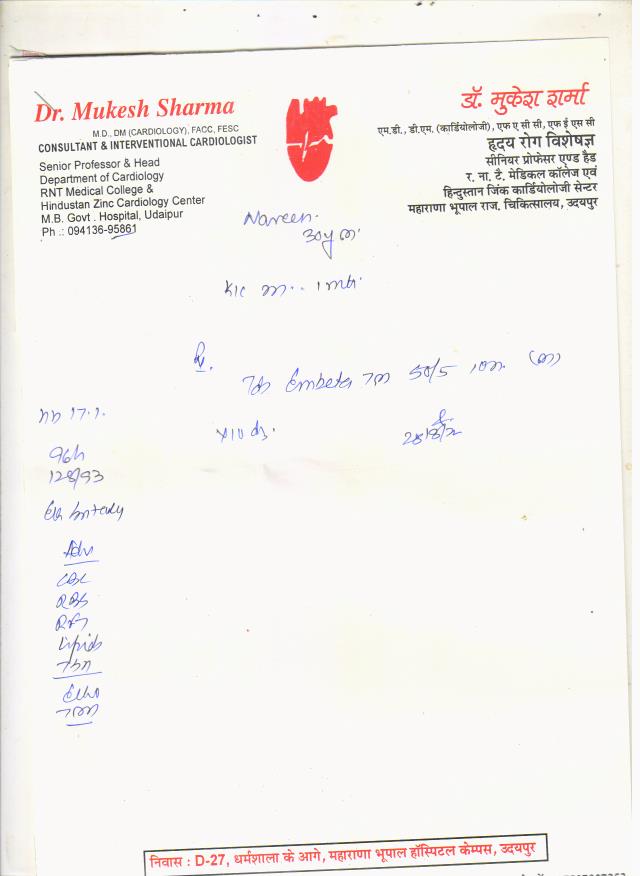 Dr. Mukesh Sharma
M.D., DM (CARDIOLOGY), FACC, FESC
CONSULTANT & INTERVENTIONAL CARDIOLOGIST
Senior Professor & Head
Department of Cardiology
RNT Medical College &
Hindustan Zinc Cardiology Center
M.B. Govt . Hospital, Udaipur
Ph .: 094136-95861
डॉ. मुकेश शर्मा
एम.डी., डी.एम. (कार्डियोलोजी), एफ ए सी सी, एफ ई एस सी
हृदय रोग विशेषज्ञ
सीनियर प्रोफेसर एण्ड हैड
र. ना. टै. मेडिकल कॉलेज एवं
हिन्दुस्तान जिंक कार्डियोलोजी सेन्टर
महाराणा भूपाल राज. चिकित्सालय, उदयपुर
Naveen.
30y m.
Embeta 50/5
128/93
Adv
CBC
RBS
RFT
Lipids
TSH
Echo
निवास : D-27, धर्मशाला के आगे, महाराणा भूपाल हॉस्पिटल केम्पस, उदयपुर